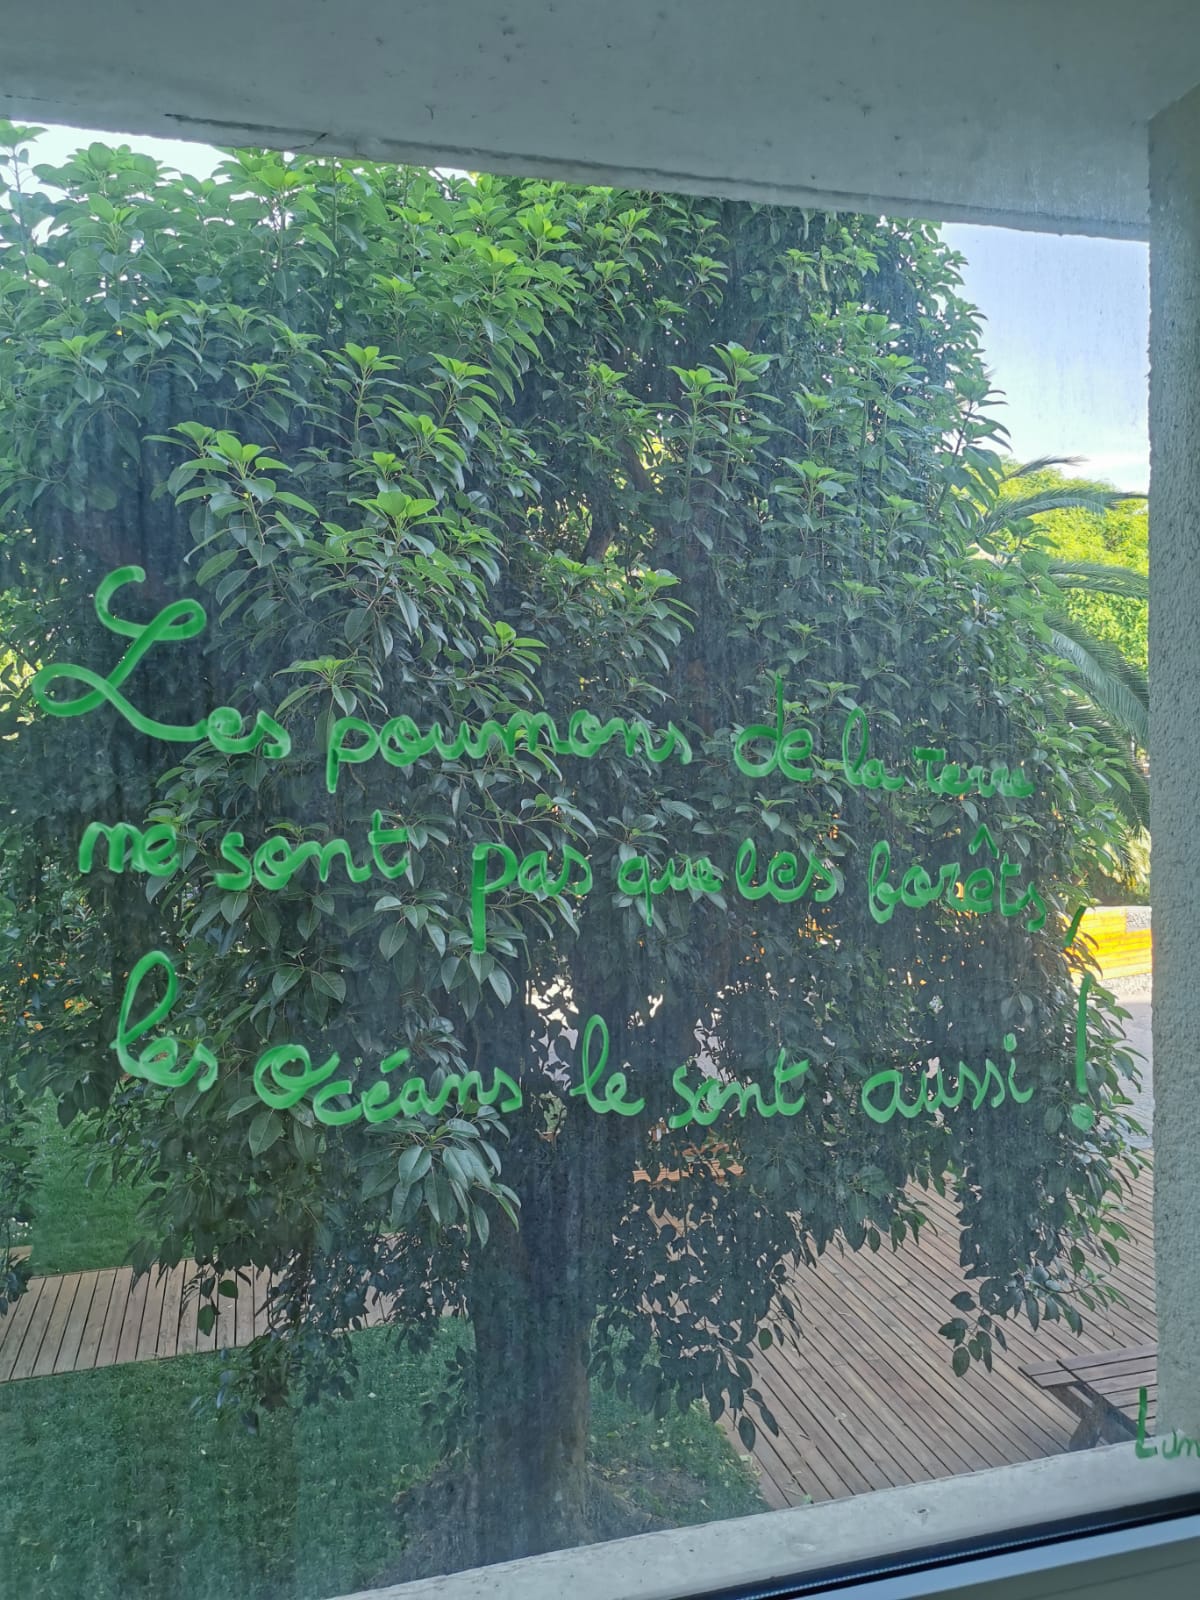 Les poumons de la Terre
ne sont pas que les forêts,
les océans le sont aussi !